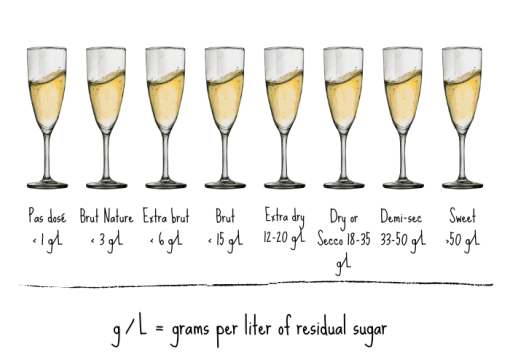 Pas dosé
< 1 g/L
Brut Nature
< 3 g/L
Extra brut
< 6 g/L
Brut
< 15 g/L
Extra dry
12-20 g/L
Dry or
Secco 18-35
g/L
Demi-sec
33-50 g/L
Sweet
>50 g/L
g / L = grams per liter of residual sugar